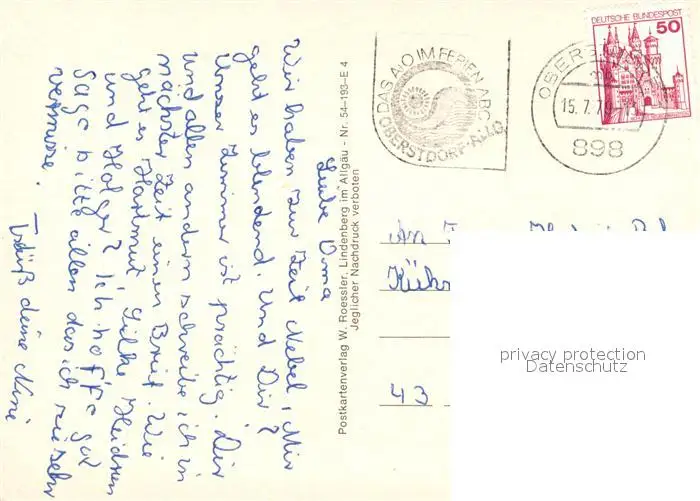 Liebe Oma
Wir haben zur Zeit Nebel, Mir
geht es blendend. Und Dir?
Unser Zimmer ist prächtig. Dir
und allen andern schreibe ich in
nächster Zeit einen Brief. Wie
geht es Hartmut, Silke, Heidrun
und Holger? Ich hoffe gut
Sage bitte allen das ich sie sehr
vermisse.
Tschüß deine Nine
Postkartenverlag W. Roessler, Lindenberg im Allgäu - Nr. 54-193-E 4
Jeglicher Nachdruck verboten
DAS A·O IM FERIEN-ABC
OBERSTDORF-ALLG.
OBERS
15.7.79
898
DEUTSCHE BUNDESPOST
50
An
43
privacy protection
Datenschutz